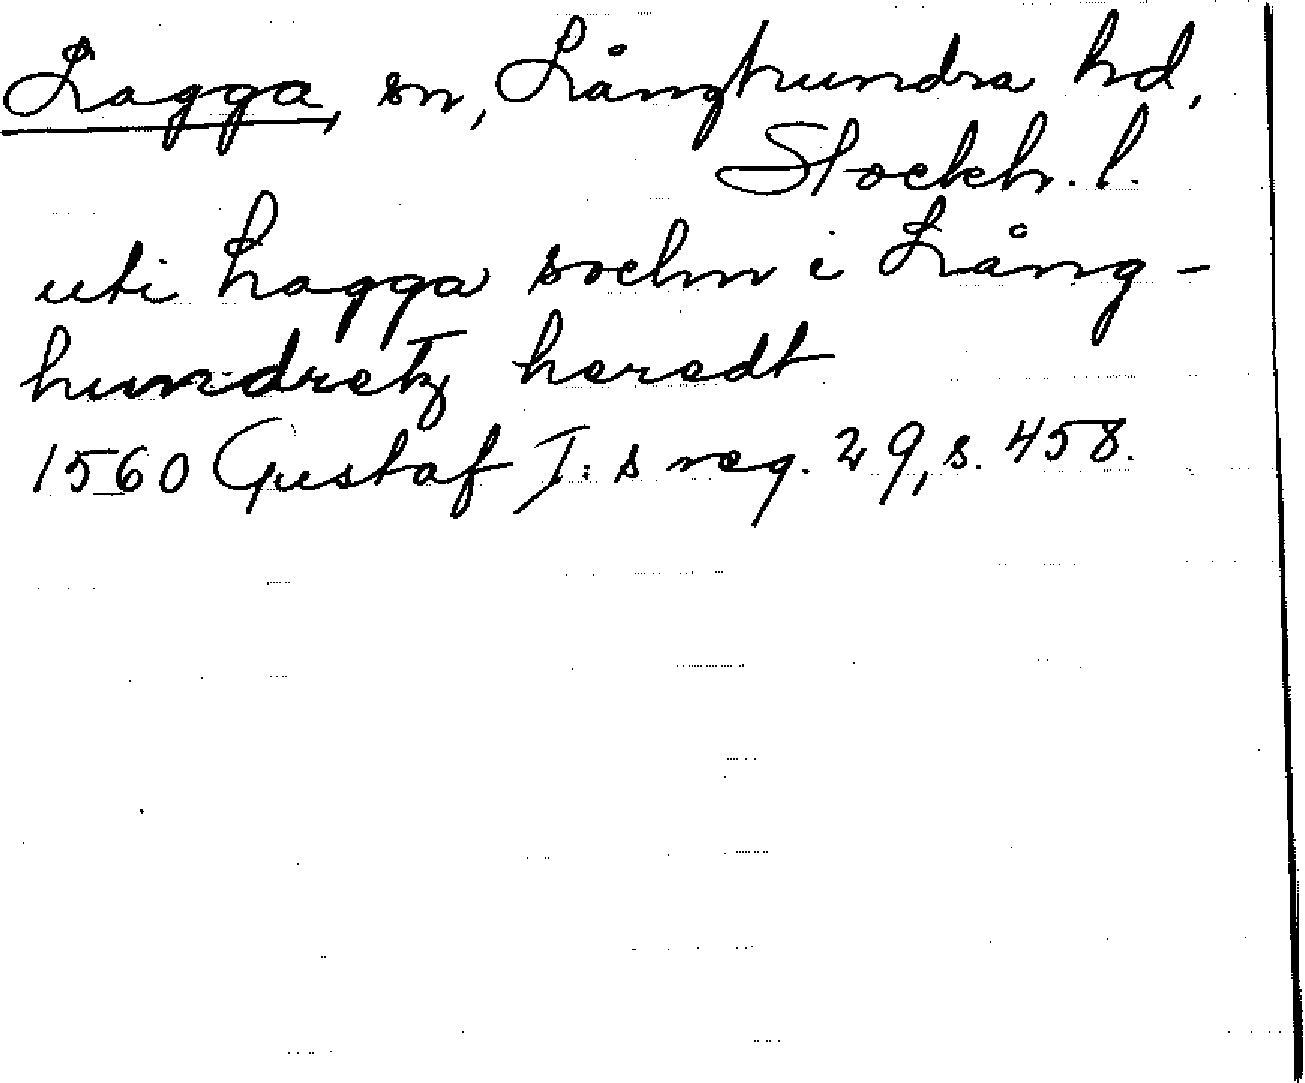 Lagga, sn, Långhundra hd,
Stockh. l.
uti Lagga sochn i Lång-
hundretz heredt
1560 Gustaf I:s reg. 29, s. 458.